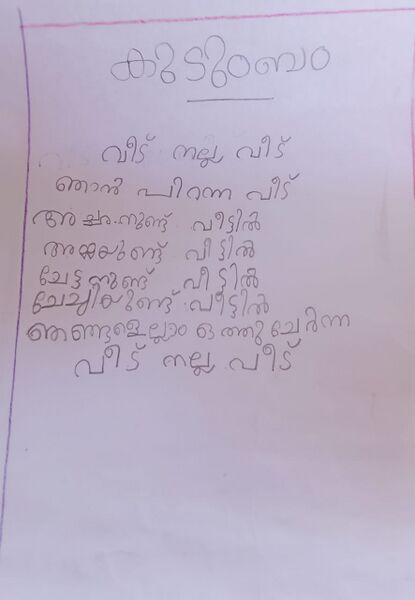 കുടുംബം
വീട് നല്ല വീട്
ഞാൻ പിറന്ന വീട്
അച്ഛനുണ്ട് വീട്ടിൽ
അമ്മയുണ്ട് വീട്ടിൽ
ചേട്ടനുണ്ട് വീട്ടിൽ
ചേച്ചിയുണ്ട് വീട്ടിൽ
ഞങ്ങളെല്ലാം ഒത്തുചേർന്ന
വീട് നല്ല വീട്